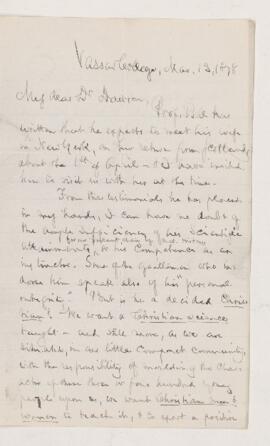 Vassar College, Mar. 13, 1878
My dear Dr Dawson,
Prof. Bell has
written that he expects to meet his wife
in New York, on his return from
about the 1st of April — & I have invited
him to visit us with her at the time.
From the testimonials he has placed
in my hands, I can have no doubt of
the ample sufficiency of his scientific
attainments, & his competence as an
instructor. Some of the gentlemen who
him speak also of his "personal
integrity." But is he a decided Chris-
tian? We want a Christian science
taught — and still more, as we are
situated, in our little compact community
with the responsibility of moulding the char-
acter of three or four hundred young
people upon us, we want Christian men &
women to teach it, & to exert a positive